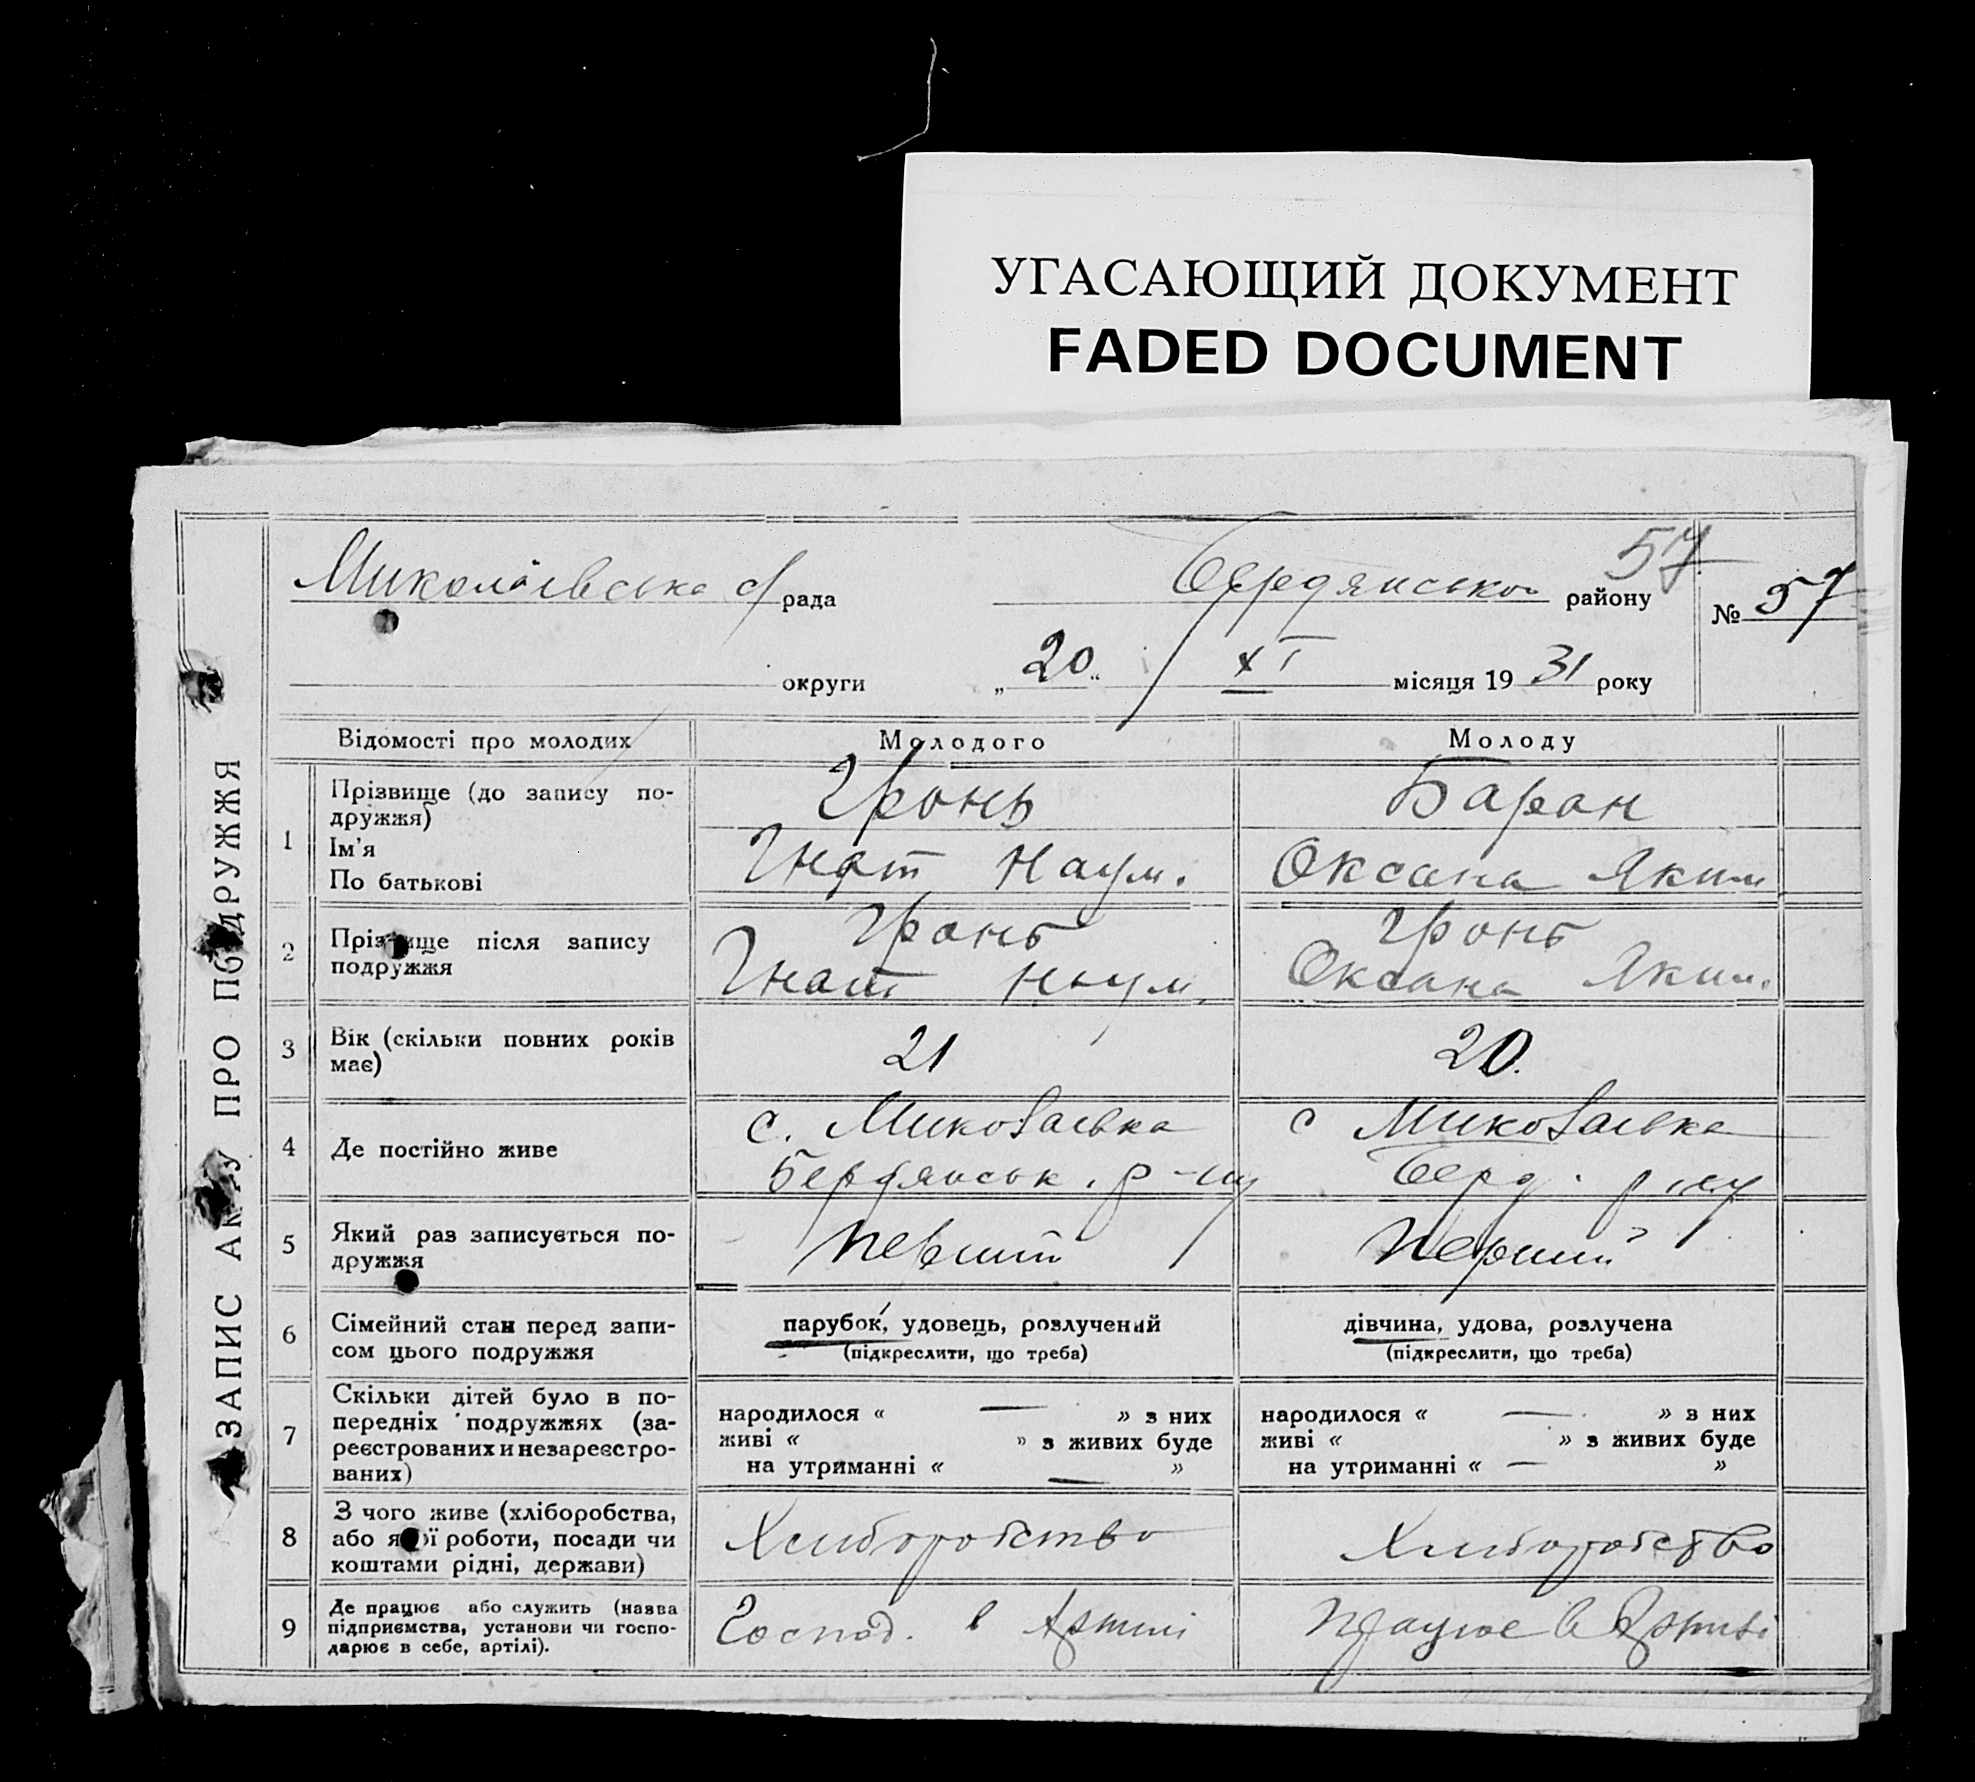 УГАСАЮЩИЙ ДОКУМЕНТ
FADED DOCUMENT
ЗАПИС АКТУ ПРО ПОДРУЖЖЯ
57
Миколаївська с/рада Бердянсько району № 57
округи „20“ XI місяця 1931 року
Відомості про молодих Молодого Молоду
1 Прізвище (до запису по-
дружжя)
Ім'я
По батькові
Гронь Баран
Гнат Наум. Оксана Яким
2 Прізвище після запису
подружжя
Гронь Гронь
Гнат Наум. Оксана Яким.
3 Вік (скільки повних років
має)
21 20.
4 Де постійно живе
с. Миколаівка с Миколаівка
Бердянськ. р-ну Берд. р.ну
5 Який раз записується по-
дружжя
Перший Перший
6 Сімейний стан перед запи-
сом цього подружжя
парубок, удовець, розлучений дівчина, удова, розлучена
(підкреслити, що треба) (підкреслити, що треба)
7 Скільки дітей було в по-
передніх подружжях (за-
реєстрованих и незареєстро-
ваних)
народилося « — » з них народилося « — » з них
живі « » з живих буде живі « » з живих буде
на утриманні « — » на утриманні « — »
8 З чого живе (хліборобства,
або якої роботи, посади чи
коштами рідні, держави)
Хлиборобство Хлиборобство
9 Де працює або служить (назва
підприємства, установи чи госпо-
дарює в себе, артілі).
Господ. в Артілі Працює в Артілі